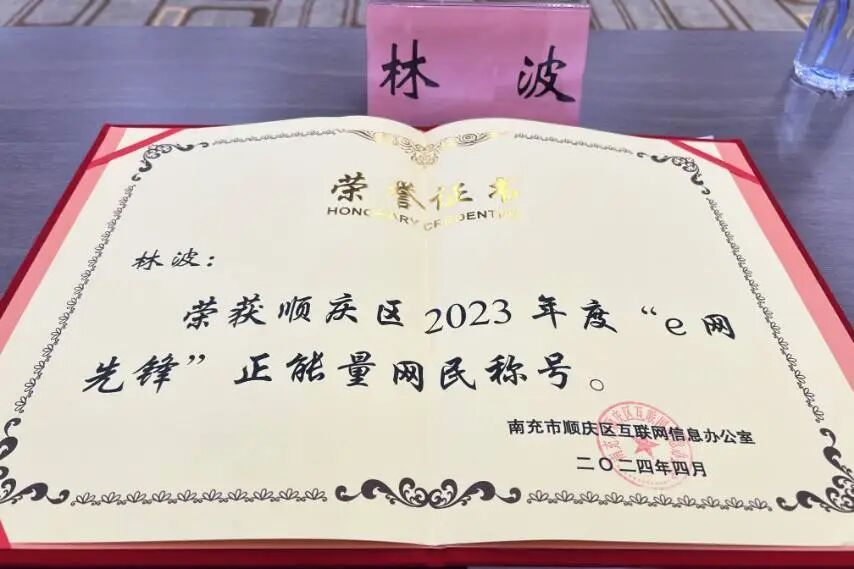 林 波
荣誉证书
HONORARY CREDENTIAL
林波：
荣获顺庆区2023年度“e网
先锋”正能量网民称号。
南充市顺庆区互联网信息办公室
二〇二四年四月